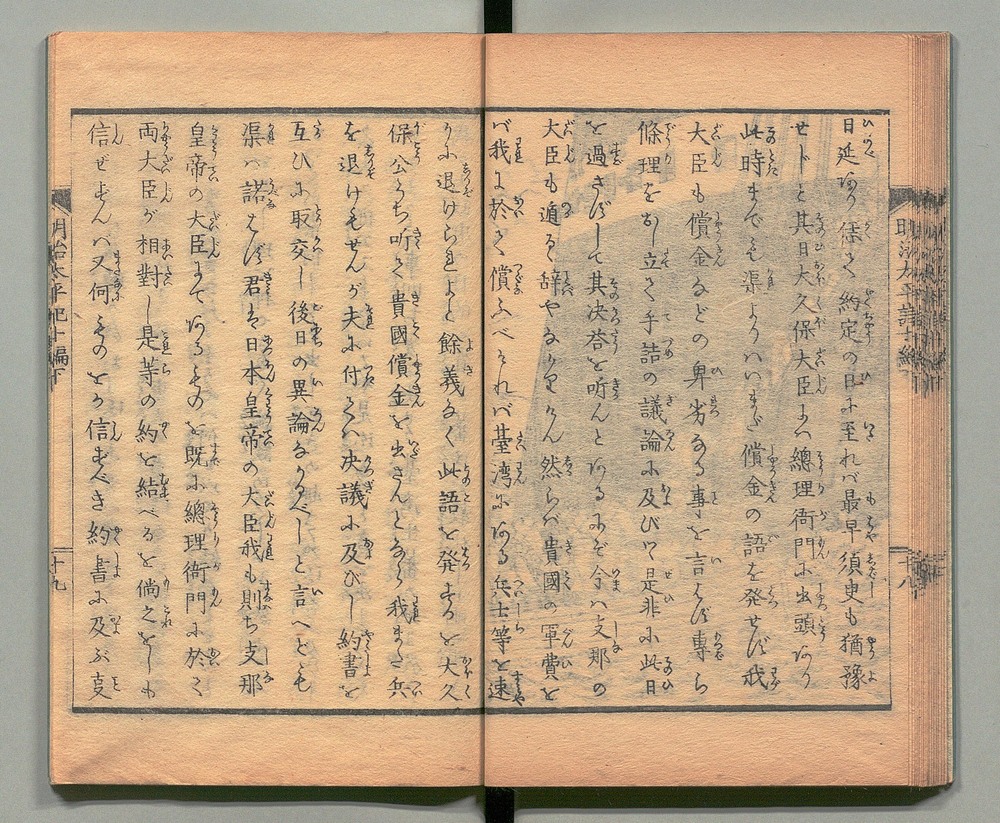 日延あり偖て約定の日に至れバ最早須臾も猶豫
せじと其日大久保大臣にハ總理衙門に出頭あり
此時までも渠よりハいまだ償金の語を発せず我
大臣も償金などの卑劣なる事を言はず専ら
條理をおし立て手詰の議論に及びツ是非に此日
を過さずして其决答を听んとあるにぞ今ハ支那の
大臣も遁る辞やなかりけん然らバ貴國の軍費を
バ我に於て償ふべけれバ䑓湾にある兵士等を速
かに退けられよと餘義なく此語を発するを大久
保公うち听て貴國償金を出さんとなら我また兵
を退けもせんが夫に付てハ决議に及びし約書を
互ひに取交し後日の異論なかるべしと言へども
渠ハ諾はず君は日本皇帝の大臣我も則ち支那
皇帝の大臣にてあるものを既に總理衙門に於て
両大臣が相對し是等の約を結べるを倘之をしも
信ぜずんバ又何ものをか信ずべき約書に及ぶ㕝
明治太平記十編下
十九
明治太平記十編
十八